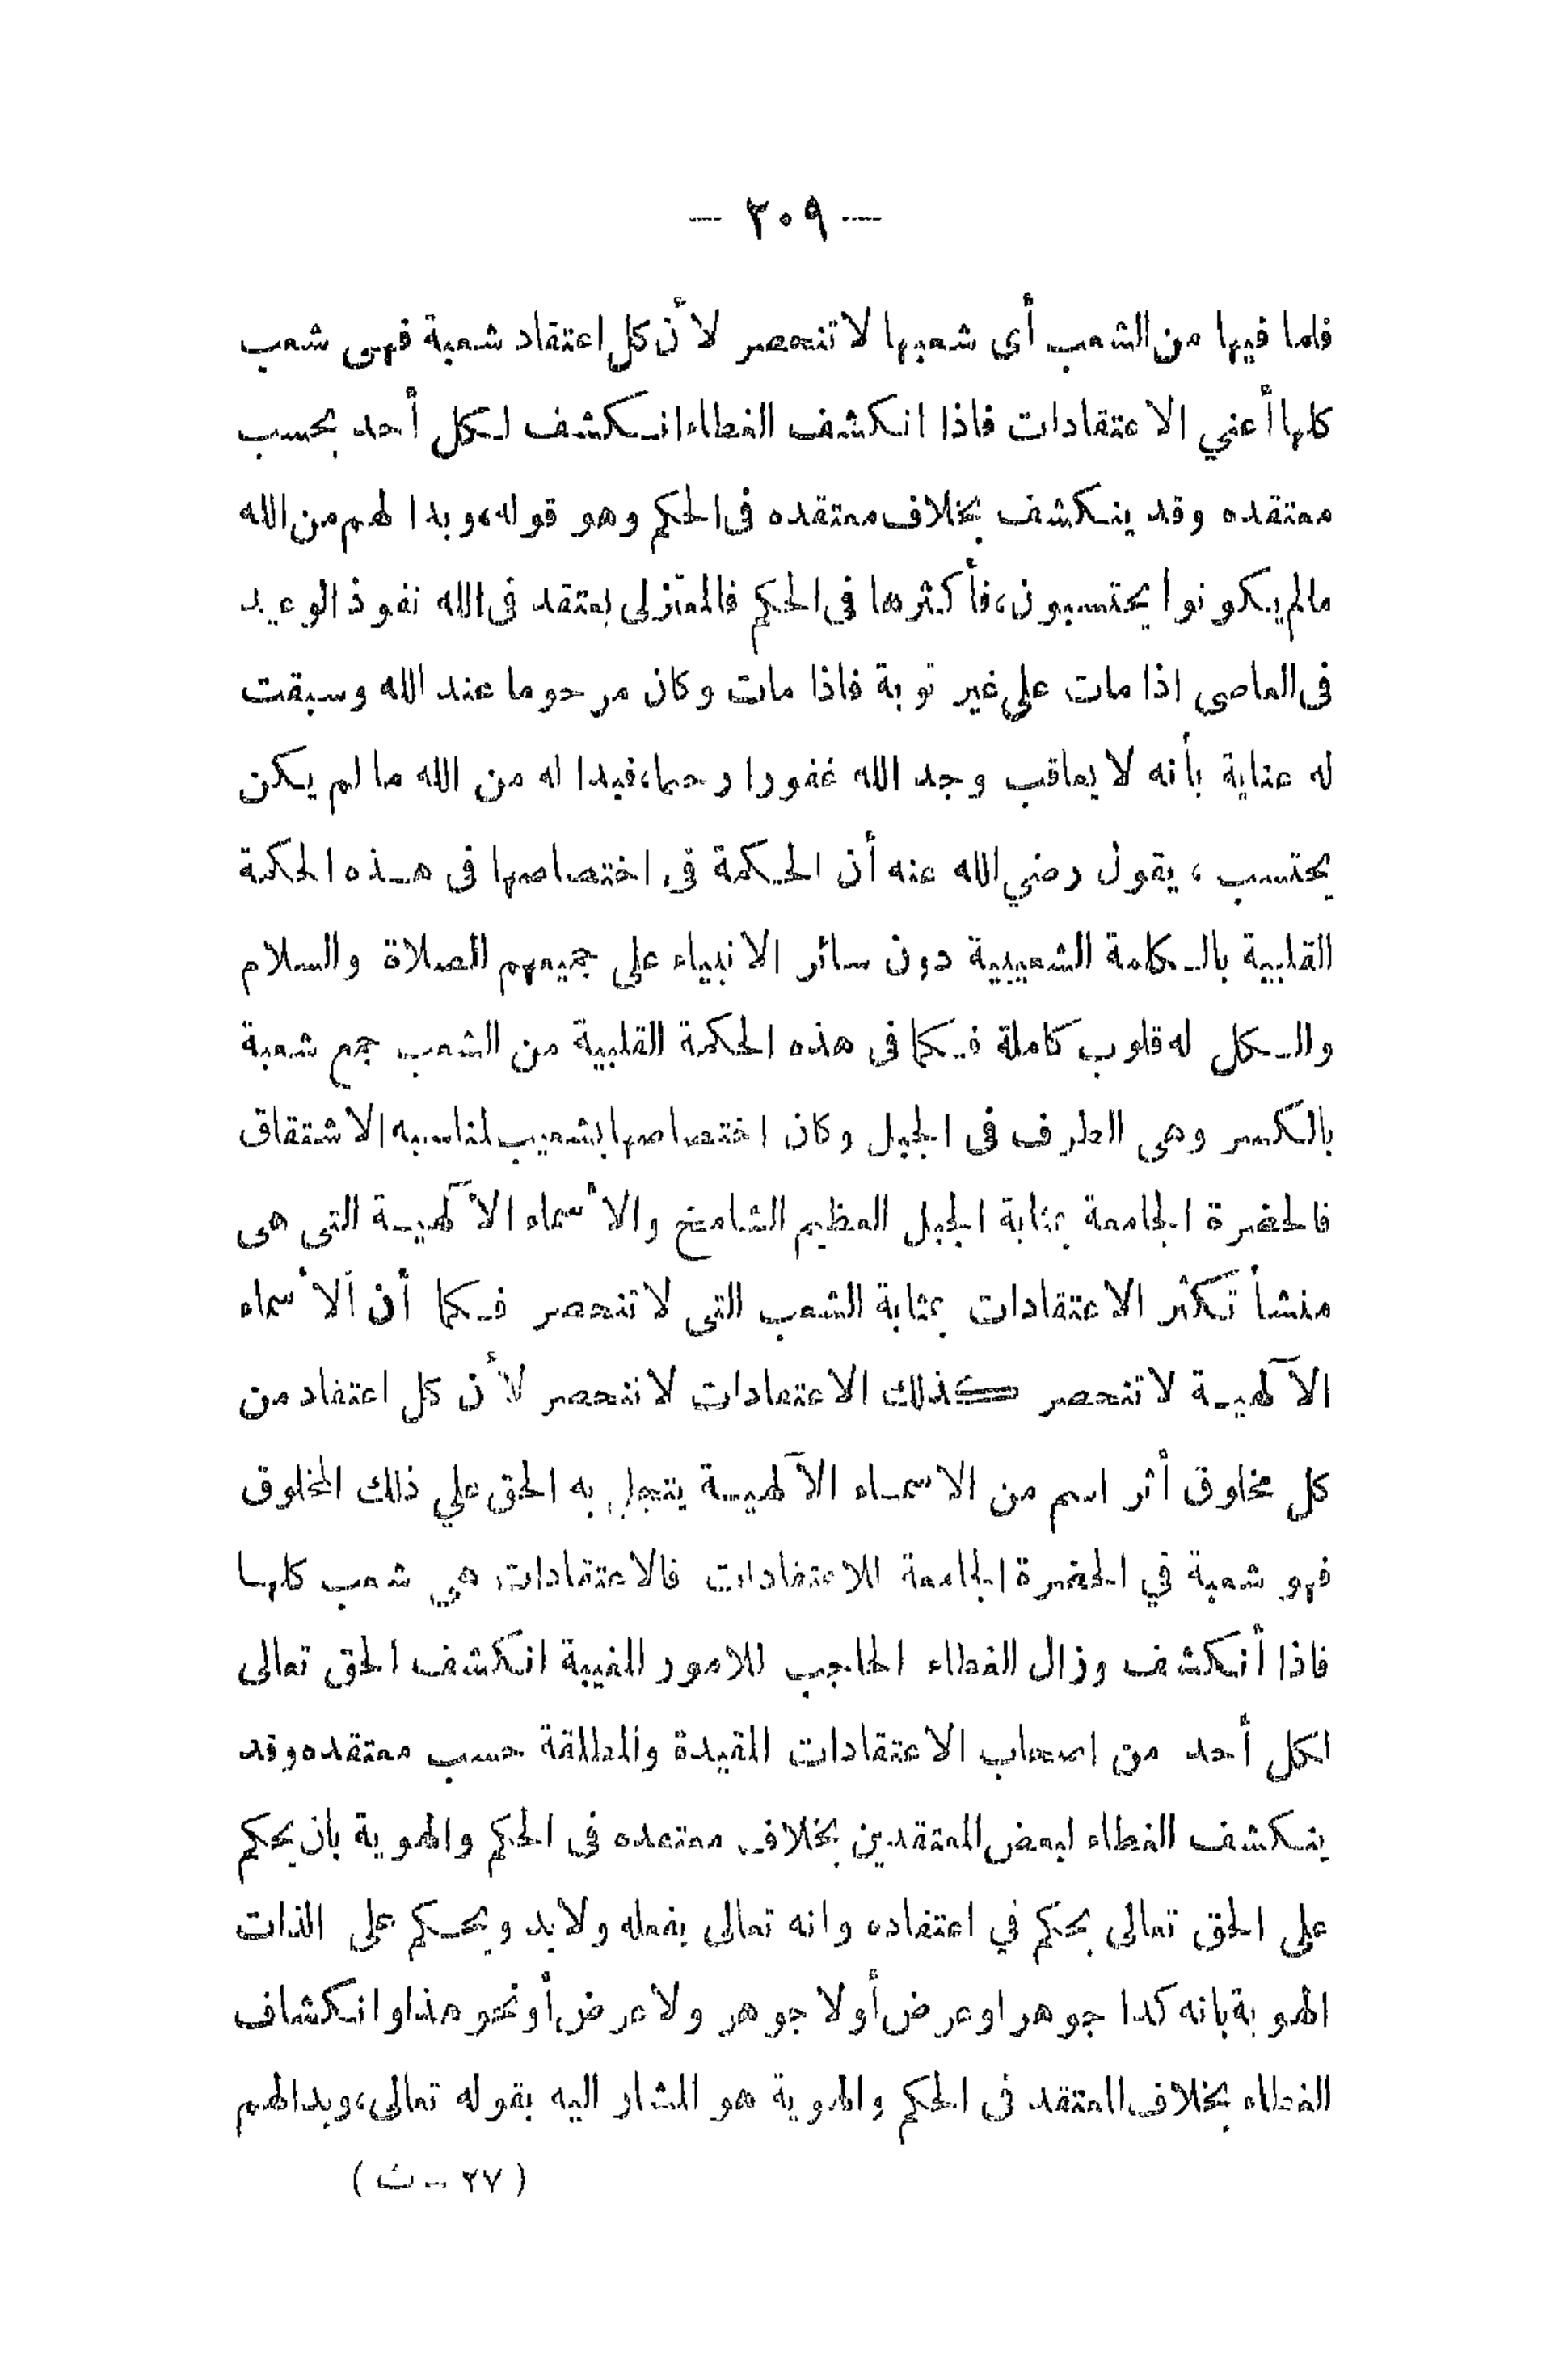 — ٢٠٩ —
فلما فيها من الشعب أى شعبها لا تنحصر لأن كل اعتقاد شعبة فهى شعب
كلها أعني الاعتقادات فاذا انكشف الغطاء انكشف لكل أحد بحسب
معتقده وقد ينكشف بخلاف معتقده فى الحكم وهو قوله، وبدا لهم من الله
مالم يكونوا يحتسبون، فأكثرها فى الحكم فالمعتزلى يعتقد فى الله نفوذ الوعيد
فى العاصى اذا مات على غير توبة فاذا مات وكان مرحوما عند الله وسبقت
له عناية بأنه لا يعاقب وجد الله غفورا رحيما، فبدا له من الله ما لم يكن
يحتسب ، يقول رضي الله عنه أن الحكمة فى اختصاصها فى هذه الحكمة
القلبية بالكلمة الشعيبية دون سائر الانبياء على جميعهم الصلاة والسلام
والكل له قلوب كاملة فكما فى هذه الحكمة القلبية من الشعب جمع شعبة
بالكسر وهى الطرف فى الجبل وكان اختصاصها بشعيب لمناسبه الاشتقاق
فالحضرة الجامعة بمثابة الجبل العظيم الشامخ والأسماء الآلهية التى هى
منشأ تكثر الاعتقادات بمثابة الشعب التى لا تنحصر فكما أن الأسماء
الآلهية لا تنحصر كذلك الاعتقادات لا تنحصر لأن كل اعتقاد من
كل مخلوق أثر اسم من الاسماء الآلهية يتجلى به الحق علي ذلك المخلوق
فهو شعبة في الحضرة الجامعة للاعتقادات فالاعتقادات هي شعب كلها
فاذا أنكشف وزال الغطاء الحاجب للامور المغيبة انكشف الحق تعالى
لكل أحد من اصحاب الاعتقادات المقيدة والمطلقة حسب معتقده وقد
ينكشف الغطاء لبعض المعتقدين بخلاف معتقده فى الحكم والهوية بان يحكم
على الحق تعالى بحكم في اعتقاده وانه تعالى يفعله ولا بد ويحكم على الذات
الهوية بانه كدا جوهر او عرض أو لا جوهر ولا عرض أو نحو هذا وانكشاف
الغطاء بخلاف المعتقد فى الحكم والهوية هو المشار اليه بقوله تعالى، وبدا لهم
( ٢٧ – ث )